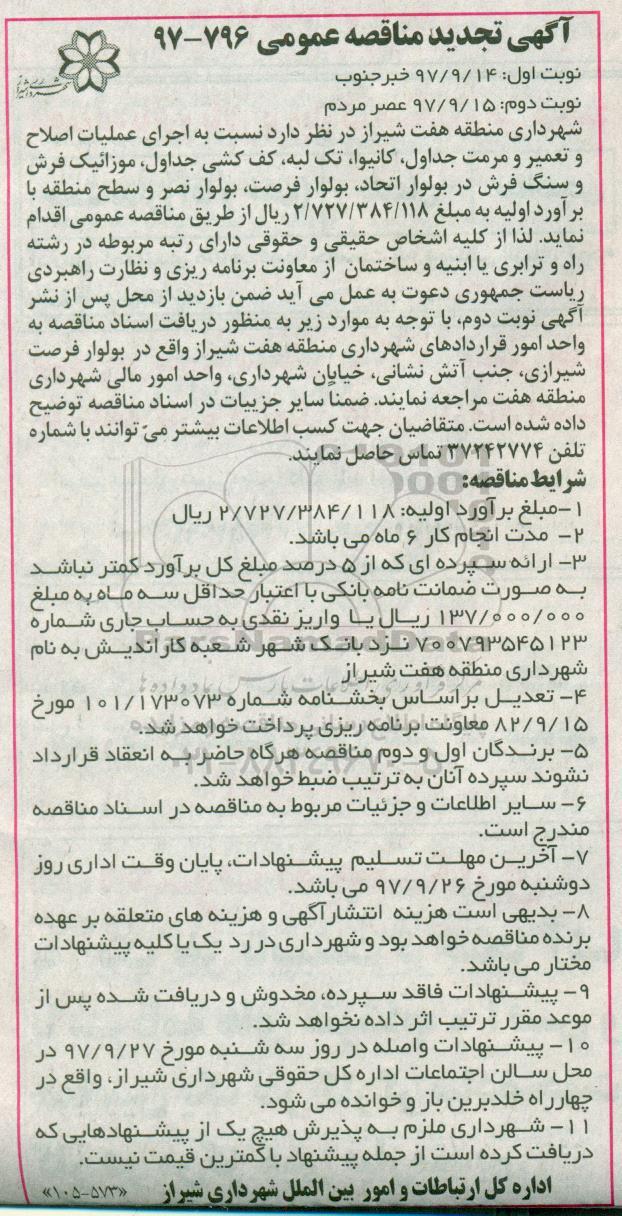 آگهی تجدید مناقصه عمومی ۷۹۶-۹۷
نوبت اول: ۹۷/۹/۱۴ خبرجنوب
نوبت دوم: ۹۷/۹/۱۵ عصر مردم
شهرداری منطقه هفت شیراز در نظر دارد نسبت به اجرای عملیات اصلاح
و تعمیر و مرمت جداول، کانیوا، تک لبه، کف کشی جداول، موزائیک فرش
و سنگ فرش در بولوار اتحاد، بولوار فرصت، بولوار نصر و سطح منطقه با
برآورد اولیه به مبلغ ۲/۷۲۷/۳۸۴/۱۱۸ ریال از طریق مناقصه عمومی اقدام
نماید. لذا از کلیه اشخاص حقیقی و حقوقی دارای رتبه مربوطه در رشته
راه و ترابری یا ابنیه و ساختمان از معاونت برنامه ریزی و نظارت راهبردی
ریاست جمهوری دعوت به عمل می آید ضمن بازدید از محل پس از نشر
آگهی نوبت دوم، با توجه به موارد زیر به منظور دریافت اسناد مناقصه به
واحد امور قراردادهای شهرداری منطقه هفت شیراز واقع در بولوار فرصت
شیرازی، جنب آتش نشانی، خیابان شهرداری، واحد امور مالی شهرداری
منطقه هفت مراجعه نمایند. ضمنا سایر جزییات در اسناد مناقصه توضیح
داده شده است. متقاضیان جهت کسب اطلاعات بیشتر می توانند با شماره
تلفن ۳۷۲۴۲۷۷۴ تماس حاصل نمایند.
شرایط مناقصه:
۱-مبلغ برآورد اولیه: ۲/۷۲۷/۳۸۴/۱۱۸ ریال
۲- مدت انجام کار ۶ ماه می باشد.
۳- ارائه سپرده ای که از ۵ درصد مبلغ کل برآورد کمتر نباشد
به صورت ضمانت نامه بانکی با اعتبار حداقل سه ماه به مبلغ
۱۳۷/۰۰۰/۰۰۰ ریال یا واریز نقدی به حساب جاری شماره
۷۰۰۷۹۳۵۴۵۱۲۳ نزد بانک شهر شعبه کاراندیش به نام
شهرداری منطقه هفت شیراز
۴- تعدیل براساس بخشنامه شماره ۱۰۱/۱۷۳۰۷۳ مورخ
۸۲/۹/۱۵ معاونت برنامه ریزی پرداخت خواهد شد.
۵- برندگان اول و دوم مناقصه هرگاه حاضر به انعقاد قرارداد
نشوند سپرده آنان به ترتیب ضبط خواهد شد.
۶- سایر اطلاعات و جزئیات مربوط به مناقصه در اسناد مناقصه
مندرج است.
۷- آخرین مهلت تسلیم پیشنهادات، پایان وقت اداری روز
دوشنبه مورخ ۹۷/۹/۲۶ می باشد.
۸- بدیهی است هزینه انتشارآگهی و هزینه های متعلقه بر عهده
برنده مناقصه خواهد بود و شهرداری در رد یک یا کلیه پیشنهادات
مختار می باشد.
۹- پیشنهادات فاقد سپرده، مخدوش و دریافت شده پس از
موعد مقرر ترتیب اثر داده نخواهد شد.
۱۰- پیشنهادات واصله در روز سه شنبه مورخ ۹۷/۹/۲۷ در
محل سالن اجتماعات اداره کل حقوقی شهرداری شیراز، واقع در
چهارراه خلدبرین باز و خوانده می شود.
۱۱- شهرداری ملزم به پذیرش هیچ یک از پیشنهادهایی که
دریافت کرده است از جمله پیشنهاد با کمترین قیمت نیست.
اداره کل ارتباطات و امور بین الملل شهرداری شیراز «۵۷۳-۱۰۵»
ParsNamadData